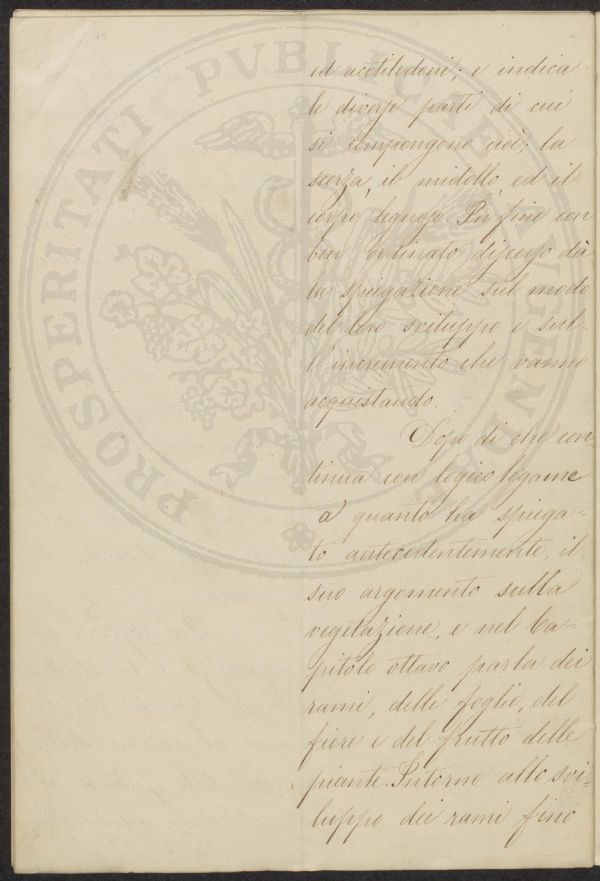 PROSPERITATI PVBLICAE AVGENDAE
ed acotiledoni; e indica
le diverse parti di cui
si compongono cioè; la
scorza, il midollo, ed il
corpo legnoso. In fine con
ben ordinato discorso dà
la spiegazione sul modo
del loro sviluppo e sul-
l'incremento che vanno
acquistando.
Dopo di che con-
tinua con logico legame
a quanto ha spiega-
to antecedentemente, il
suo argomento sulla
vegetazione, e nel Ca-
pitolo ottavo parla dei
rami, delle foglie, del
fiore e del frutto delle
piante. Intorno allo svi-
luppo dei rami fino